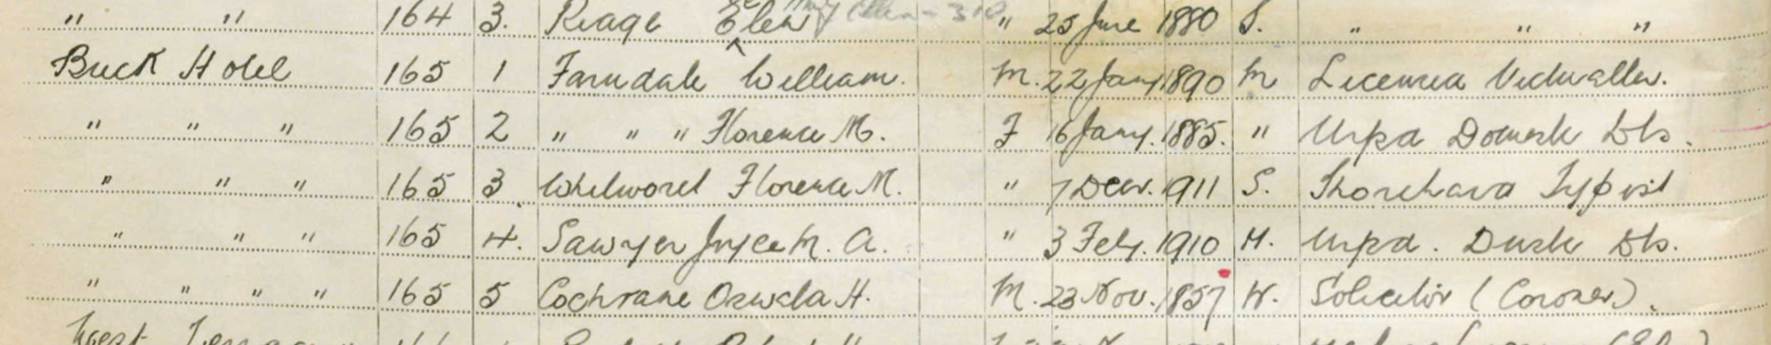 " " 164 3. Ellen " 25 June 1880 S. " " "
Buck Hotel 165 1 Farndale William. M. 22 Jany 1890 M Licensed Victualler.
" " " 165 2 " " " Florence M. F 16 Jany. 1885. " Unpd Domestic Dts.
" " " 165 3 Florence M. " 7 Decr. 1911 S. Shorthand Typist
" " " 165 4. Sawyer Joyce M. A. " 3 Feby. 1910 M. Unpd. Dmstc Dts.
" " " " 165 5 Cochrane Oswald H. M. 23 Nov. 1857 W. Solicitor (Coroner).
West